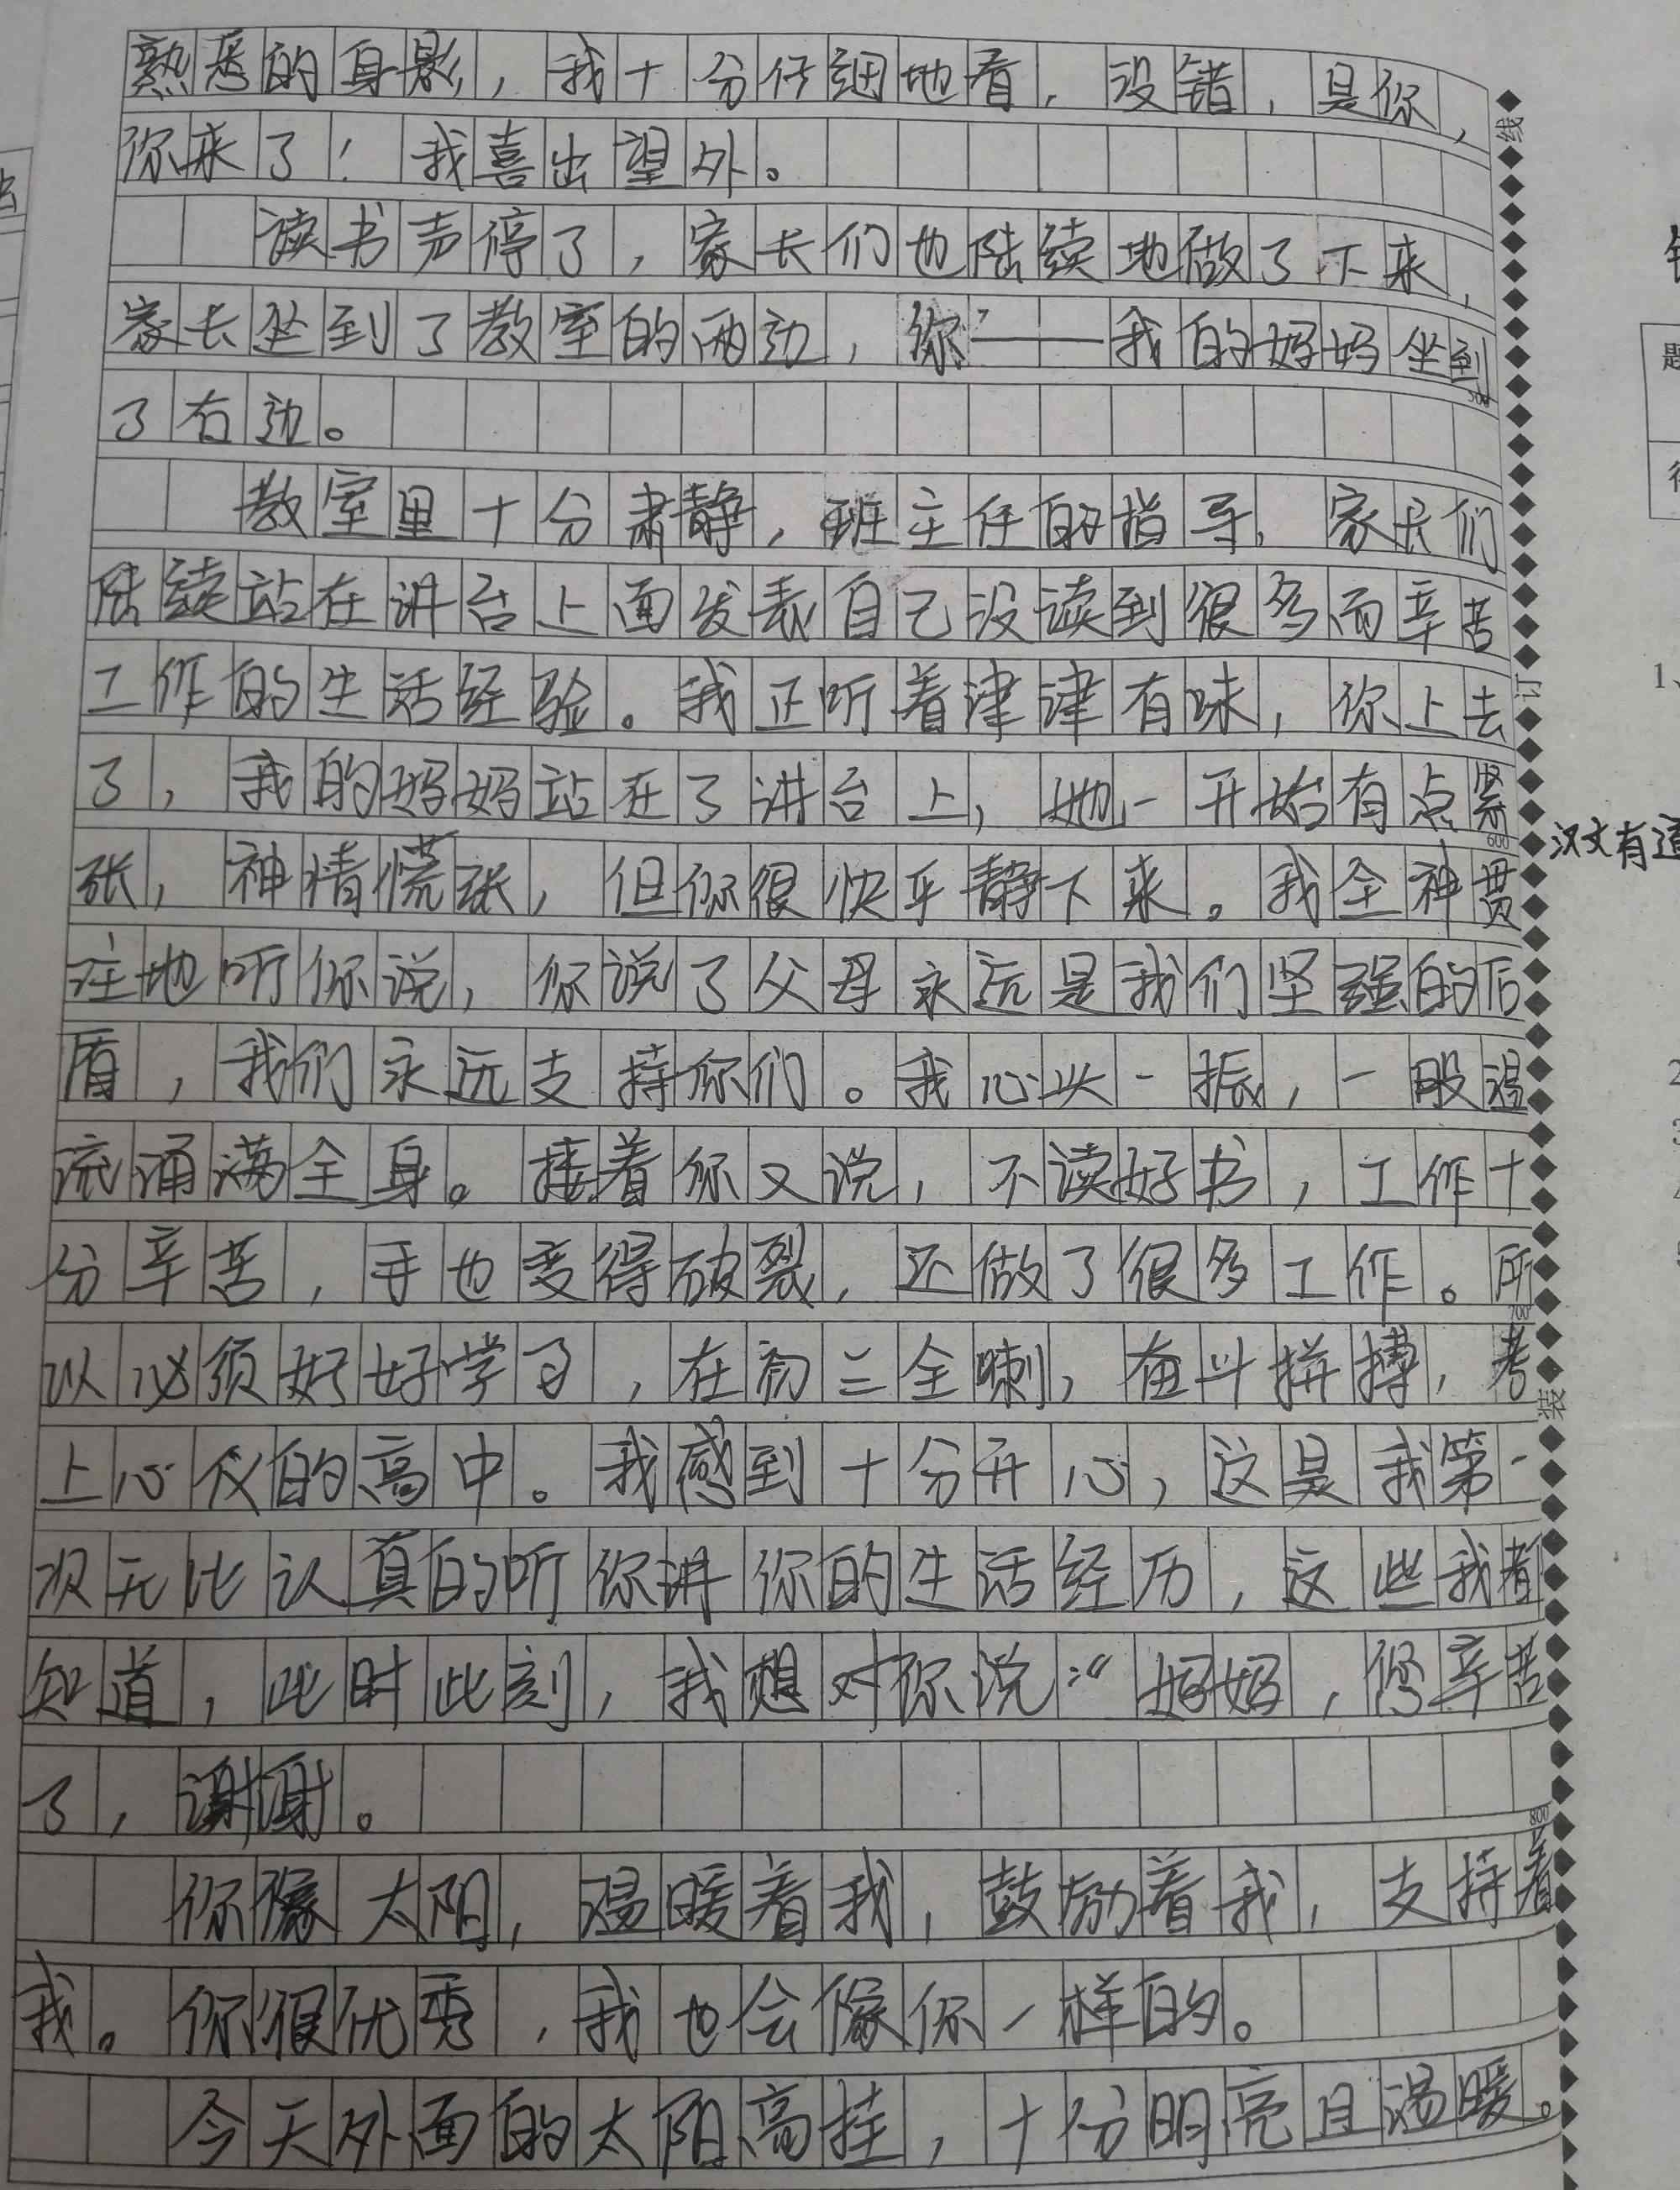 熟悉的身影，我十分仔细地看，没错，是你，
你来了！我喜出望外。
读书声停了，家长们也陆续地做了下来，
家长坐到了教室的两边，你——我的妈妈坐到
了右边。
教室里十分肃静，班主任的指导，家长们
陆续站在讲台上面发表自己没读到很多而辛苦
工作的生活经验。我正听着津津有味，你上去
了，我的妈妈站在了讲台上，她一开始有点紧
张，神情慌张，但你很快平静下来。我全神贯
注地听你说，你说了父母永远是我们坚强的后
盾，我们永远支持你们。我心头一振，一股温
流涌满全身。接着你又说，不读好书，工作十
分辛苦，手也变得破裂，还做了很多工作。所
以必须好好学习，在初三全喇，奋斗拼搏，考
上心仪的高中。我感到十分开心，这是我第一
次无比认真的听你讲你的生活经历，这些我都
知道，此时此刻，我想对你说：“妈妈，您辛苦
了，谢谢。
你像太阳，温暖着我，鼓励着我，支持着
我。你很优秀，我也会像你一样的。
今天外面的太阳高挂，十分明亮且温暖。
线
500
订
600
汉文有道
700
装
800
1、